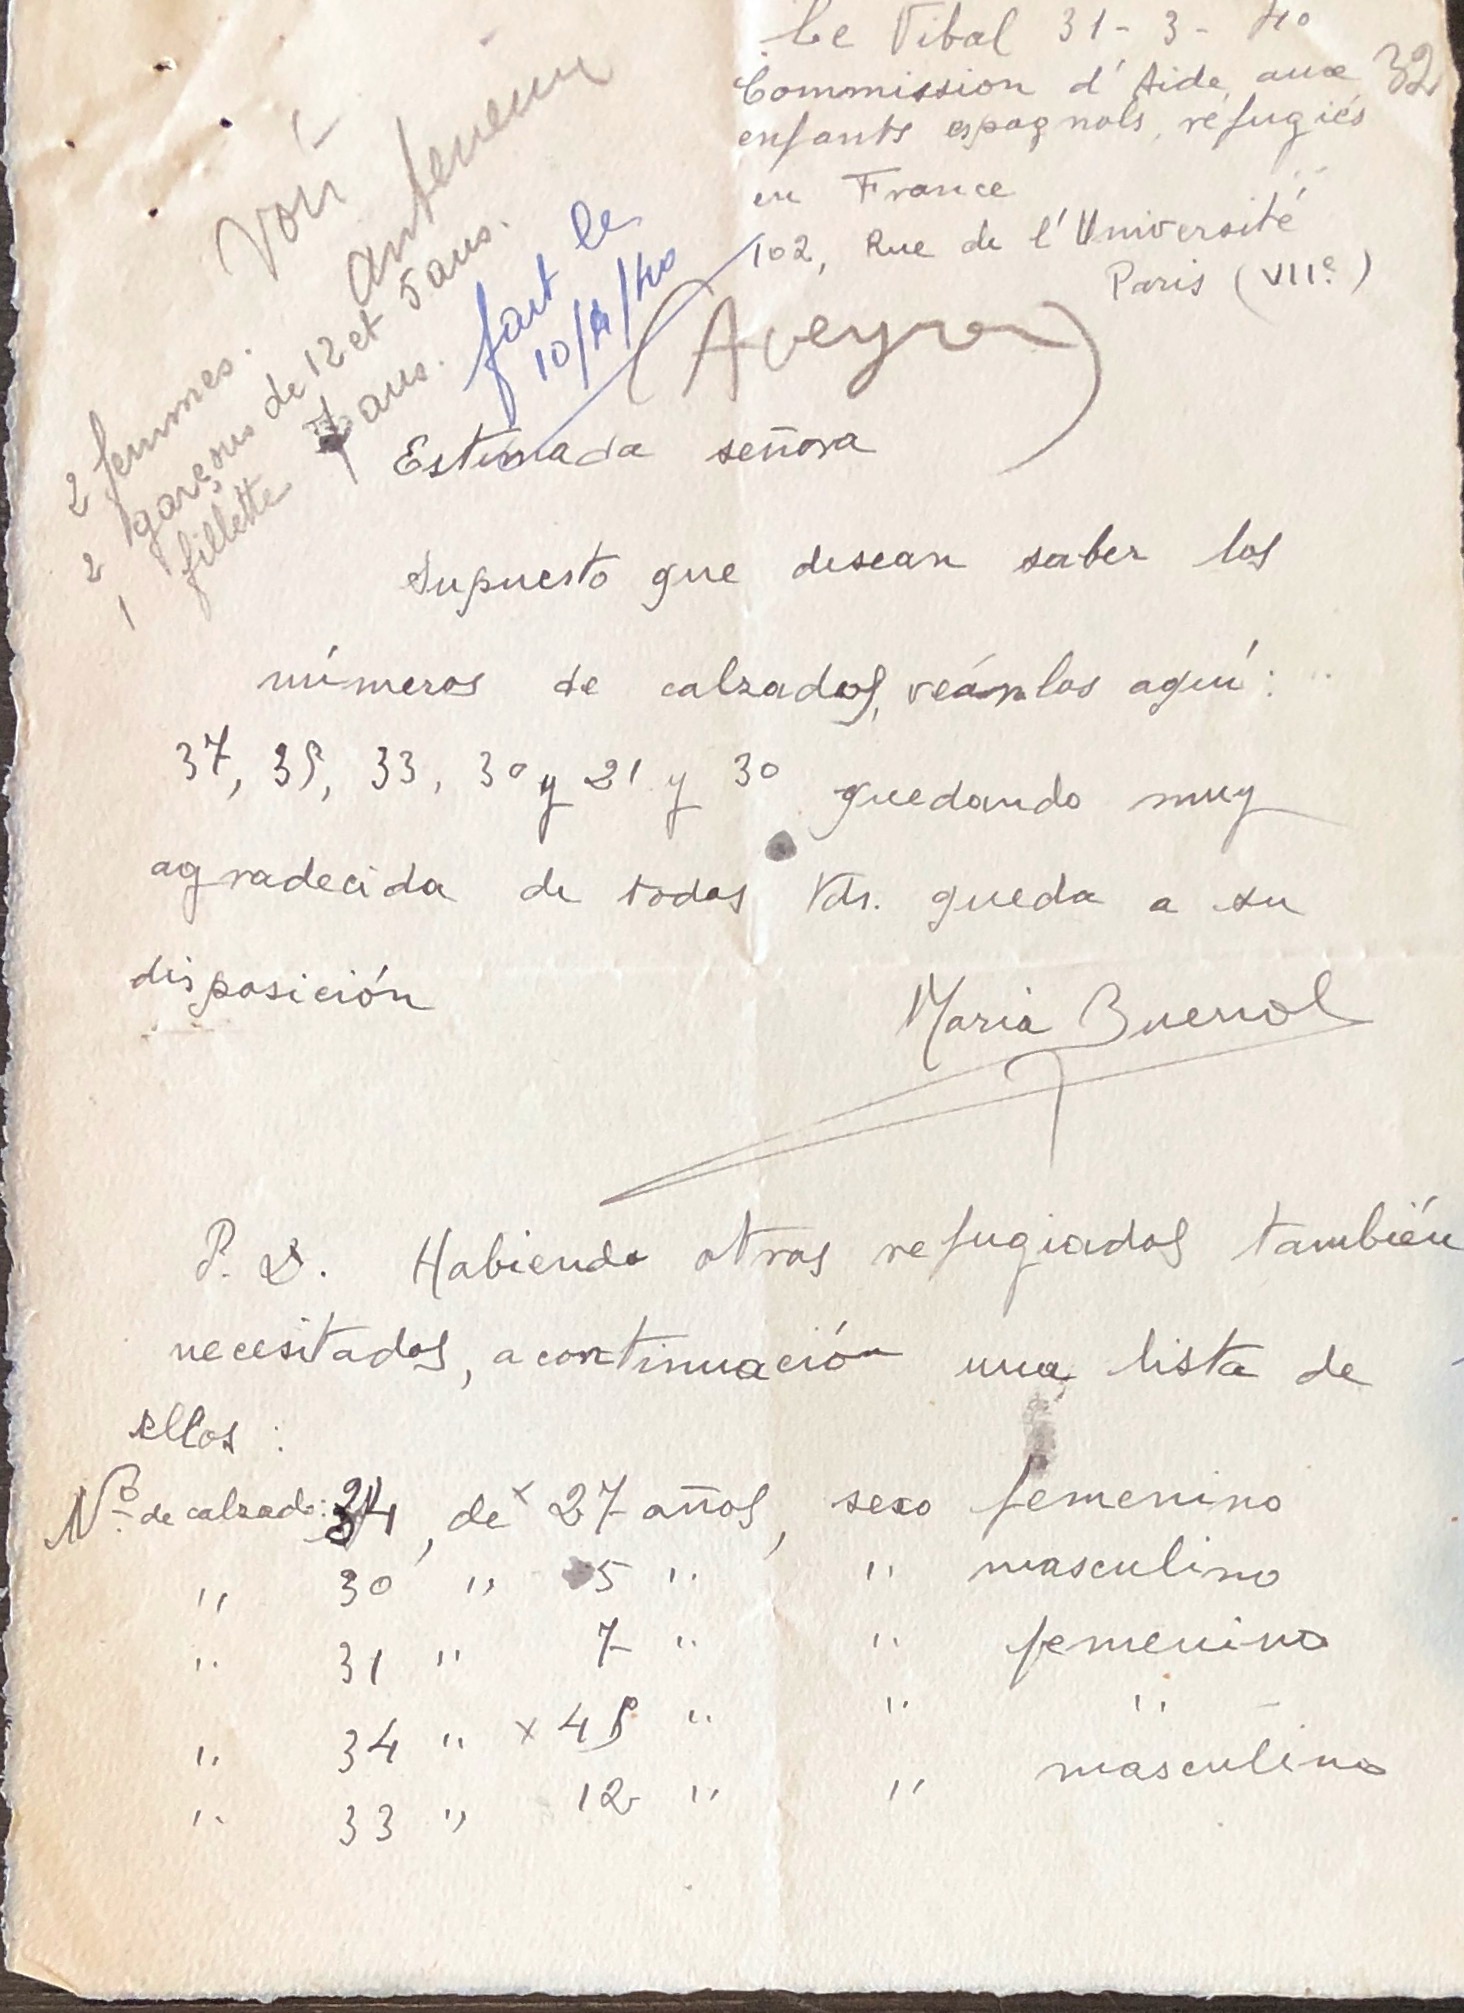 Le Vibal 31-3-40
32
Commission d'Aide aux
enfants espagnols, réfugiés
en France
102, Rue de l'Université
Paris (VIIe)
(Aveyron)
Voir
antérieur
fait le
10/4/40
2 femmes.
2 garçons de 12 et 5 ans.
1 fillette 7 ans.
Estimada señora
Supuesto que desean saber los
números de calzados, veánlos aquí:
37, 35, 33, 30 y 21 y 30 quedando muy
agradecida de todos Vds. queda a su
disposición
Maria Buerrol
P. D. Habiendo otros refugiados también
necesitados, a continuación una lista de
ellos:
Nº de calzado: 34, de x 27 años, sexo femenino
,, 30 ,, 5 ,, ,, masculino
,, 31 ,, 7 ,, ,, femenino
,, 34 ,, x 45 ,, ,, ,,
,, 33 ,, 12 ,, ,, masculino